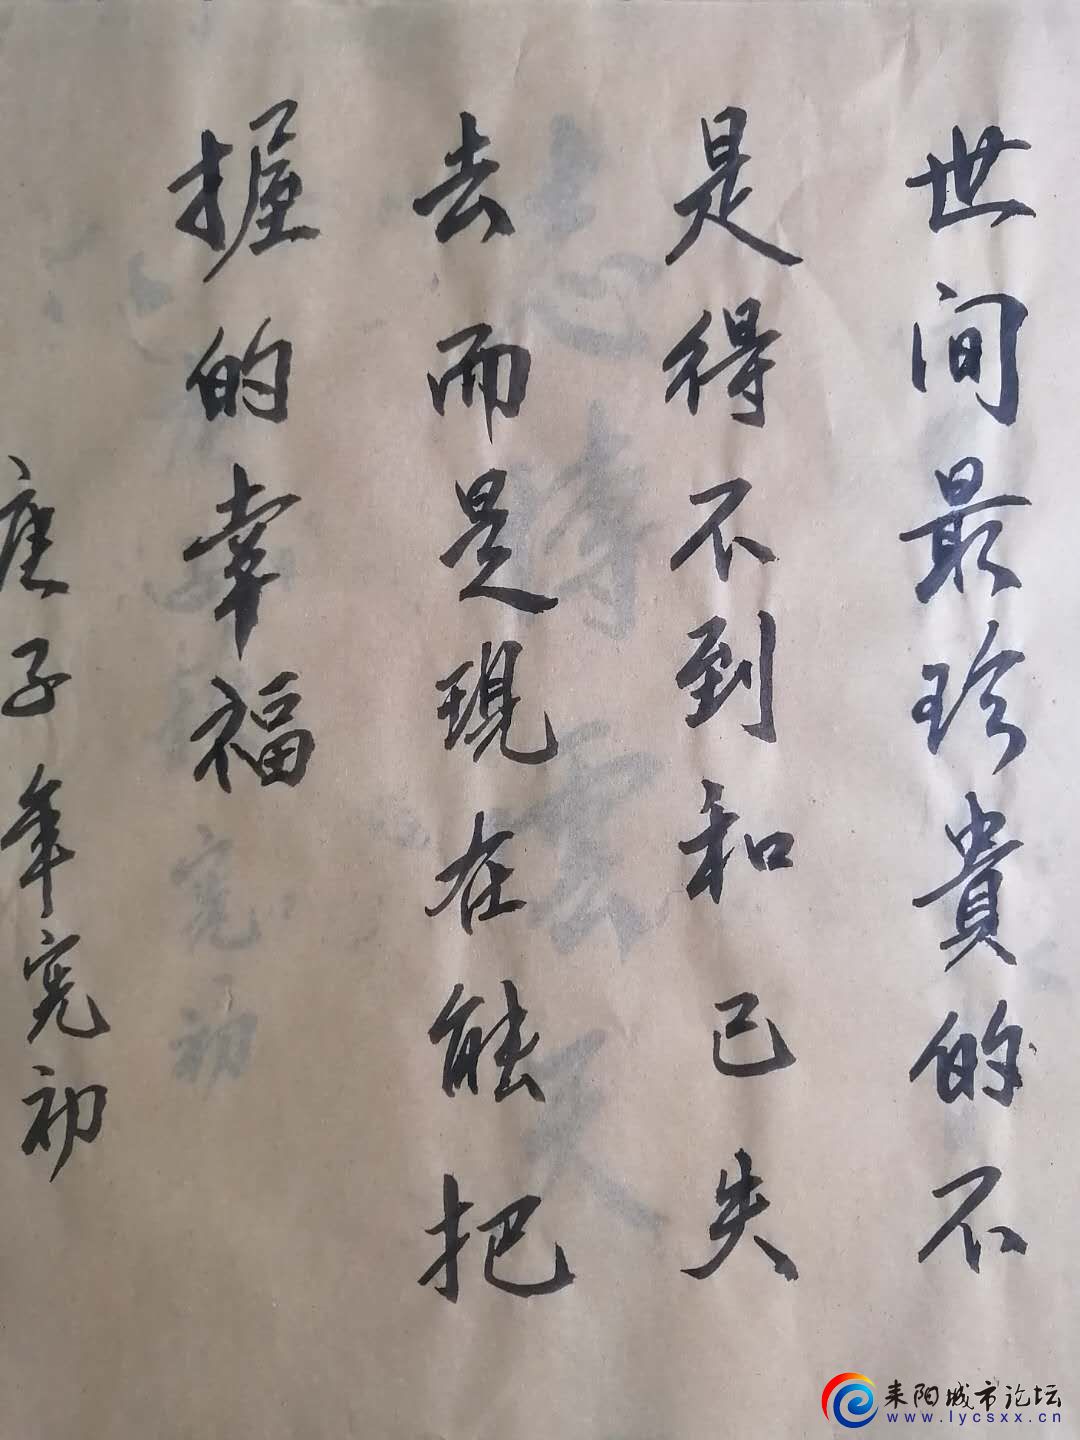 世间最珍貴的不
是得不到和已失
去而是現在能把
握的幸福
庚子年寛初
耒阳城市论坛
www.lycsxx.cn